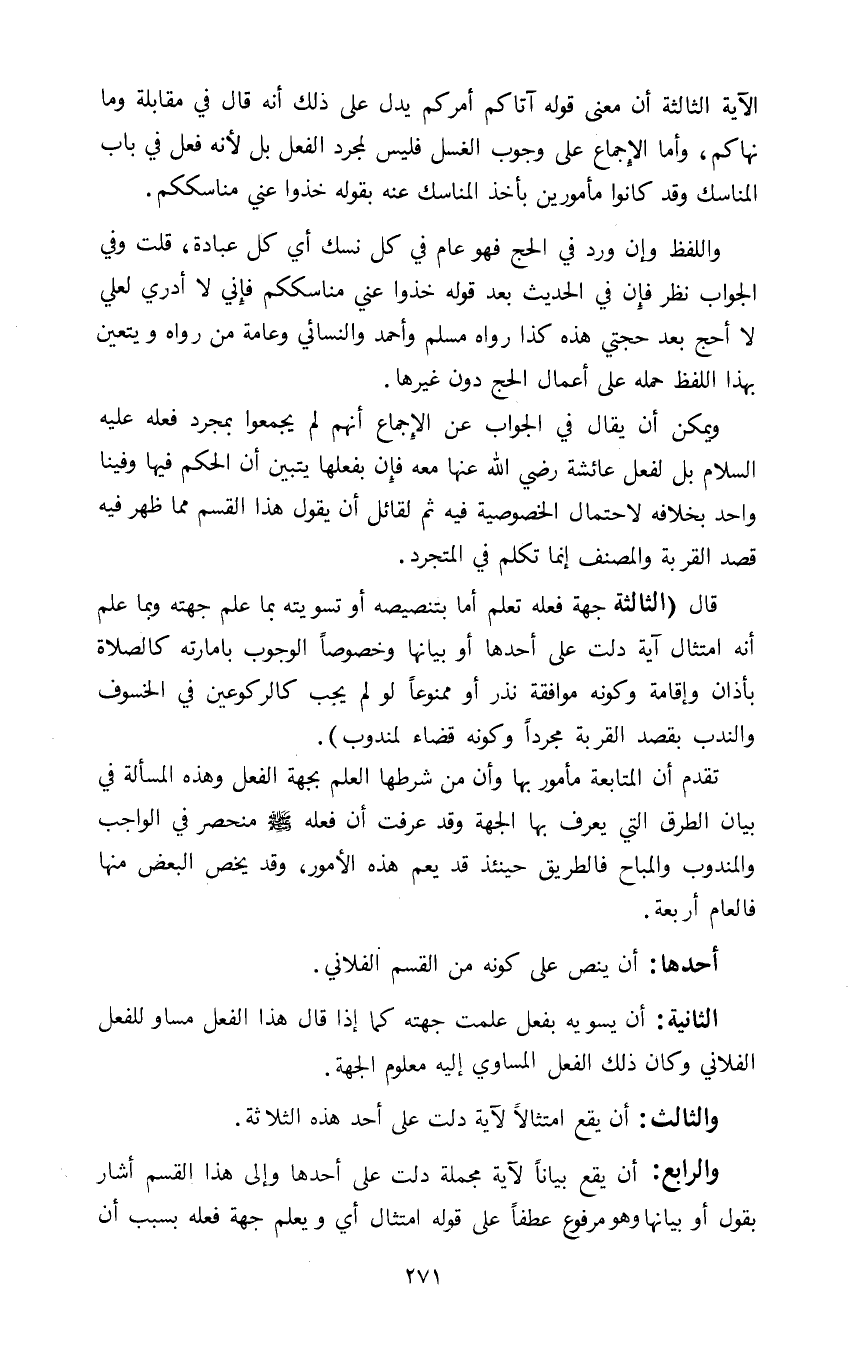 الآية الثالثة أن معنى قوله آتاكم أمركم يدل على ذلك أنه قال في مقابلة وما
نهاكم، وأما الإجماع على وجوب الغسل فليس لمجرد الفعل بل لأنه فعل في باب
المناسك وقد كانوا مأمورين بأخذ المناسك عنه بقوله خذوا عني مناسككم.
واللفظ وإن ورد في الحج فهو عام في كل نسك أي كل عبادة، قلت وفي
الجواب نظر فإن في الحديث بعد قوله خذوا عني مناسككم فإني لا أدري لعلي
لا أحج بعد حجتي هذه كذا رواه مسلم وأحمد والنسائي وعامة من رواه ويتعين
بهذا اللفظ حمله على أعمال الحج دون غيرها.
ويمكن أن يقال في الجواب عن الإجماع أنهم لم يجمعوا بمجرد فعله عليه
السلام بل لفعل عائشة رضي الله عنها معه فإن بفعلها يتبين أن الحكم فيها وفينا
واحد بخلافه لاحتمال الخصوصية فيه ثم لقائل أن يقول هذا القسم مما ظهر فيه
قصد القربة والمصنف إنما تكلم في المتجرد.
قال (الثالثة جهة فعله تعلم أما بتنصيصه أو تسويته بما علم جهته وبما علم
أنه امتثال آية دلت على أحدها أو بيانها وخصوصاً الوجوب بامارته كالصلاة
بأذان وإقامة وكونه موافقة نذر أو ممنوعاً لو لم يجب كالركوعين في الخسوف
والندب بقصد القربة مجرداً وكونه قضاء لمندوب).
تقدم أن المتابعة مأمور بها وأن من شرطها العلم بجهة الفعل وهذه المسألة في
بيان الطرق التي يعرف بها الجهة وقد عرفت أن فعله ﷺ منحصر في الواجب
والمندوب والمباح فالطريق حينئذ قد يعم هذه الأمور، وقد يخص البعض منها
فالعام أربعة.
أحدها: أن ينص على كونه من القسم الفلاني.
الثانية: أن يسويه بفعل علمت جهته كما إذا قال هذا الفعل مساو للفعل
الفلاني وكان ذلك الفعل المساوي إليه معلوم الجهة.
والثالث: أن يقع امتثالاً لآية دلت على أحد هذه الثلاثة.
والرابع: أن يقع بياناً لآية مجملة دلت على أحدها وإلى هذا القسم أشار
بقول أو بيانها وهو مرفوع عطفاً على قوله امتثال أي ويعلم جهة فعله بسبب أن
٢٧١